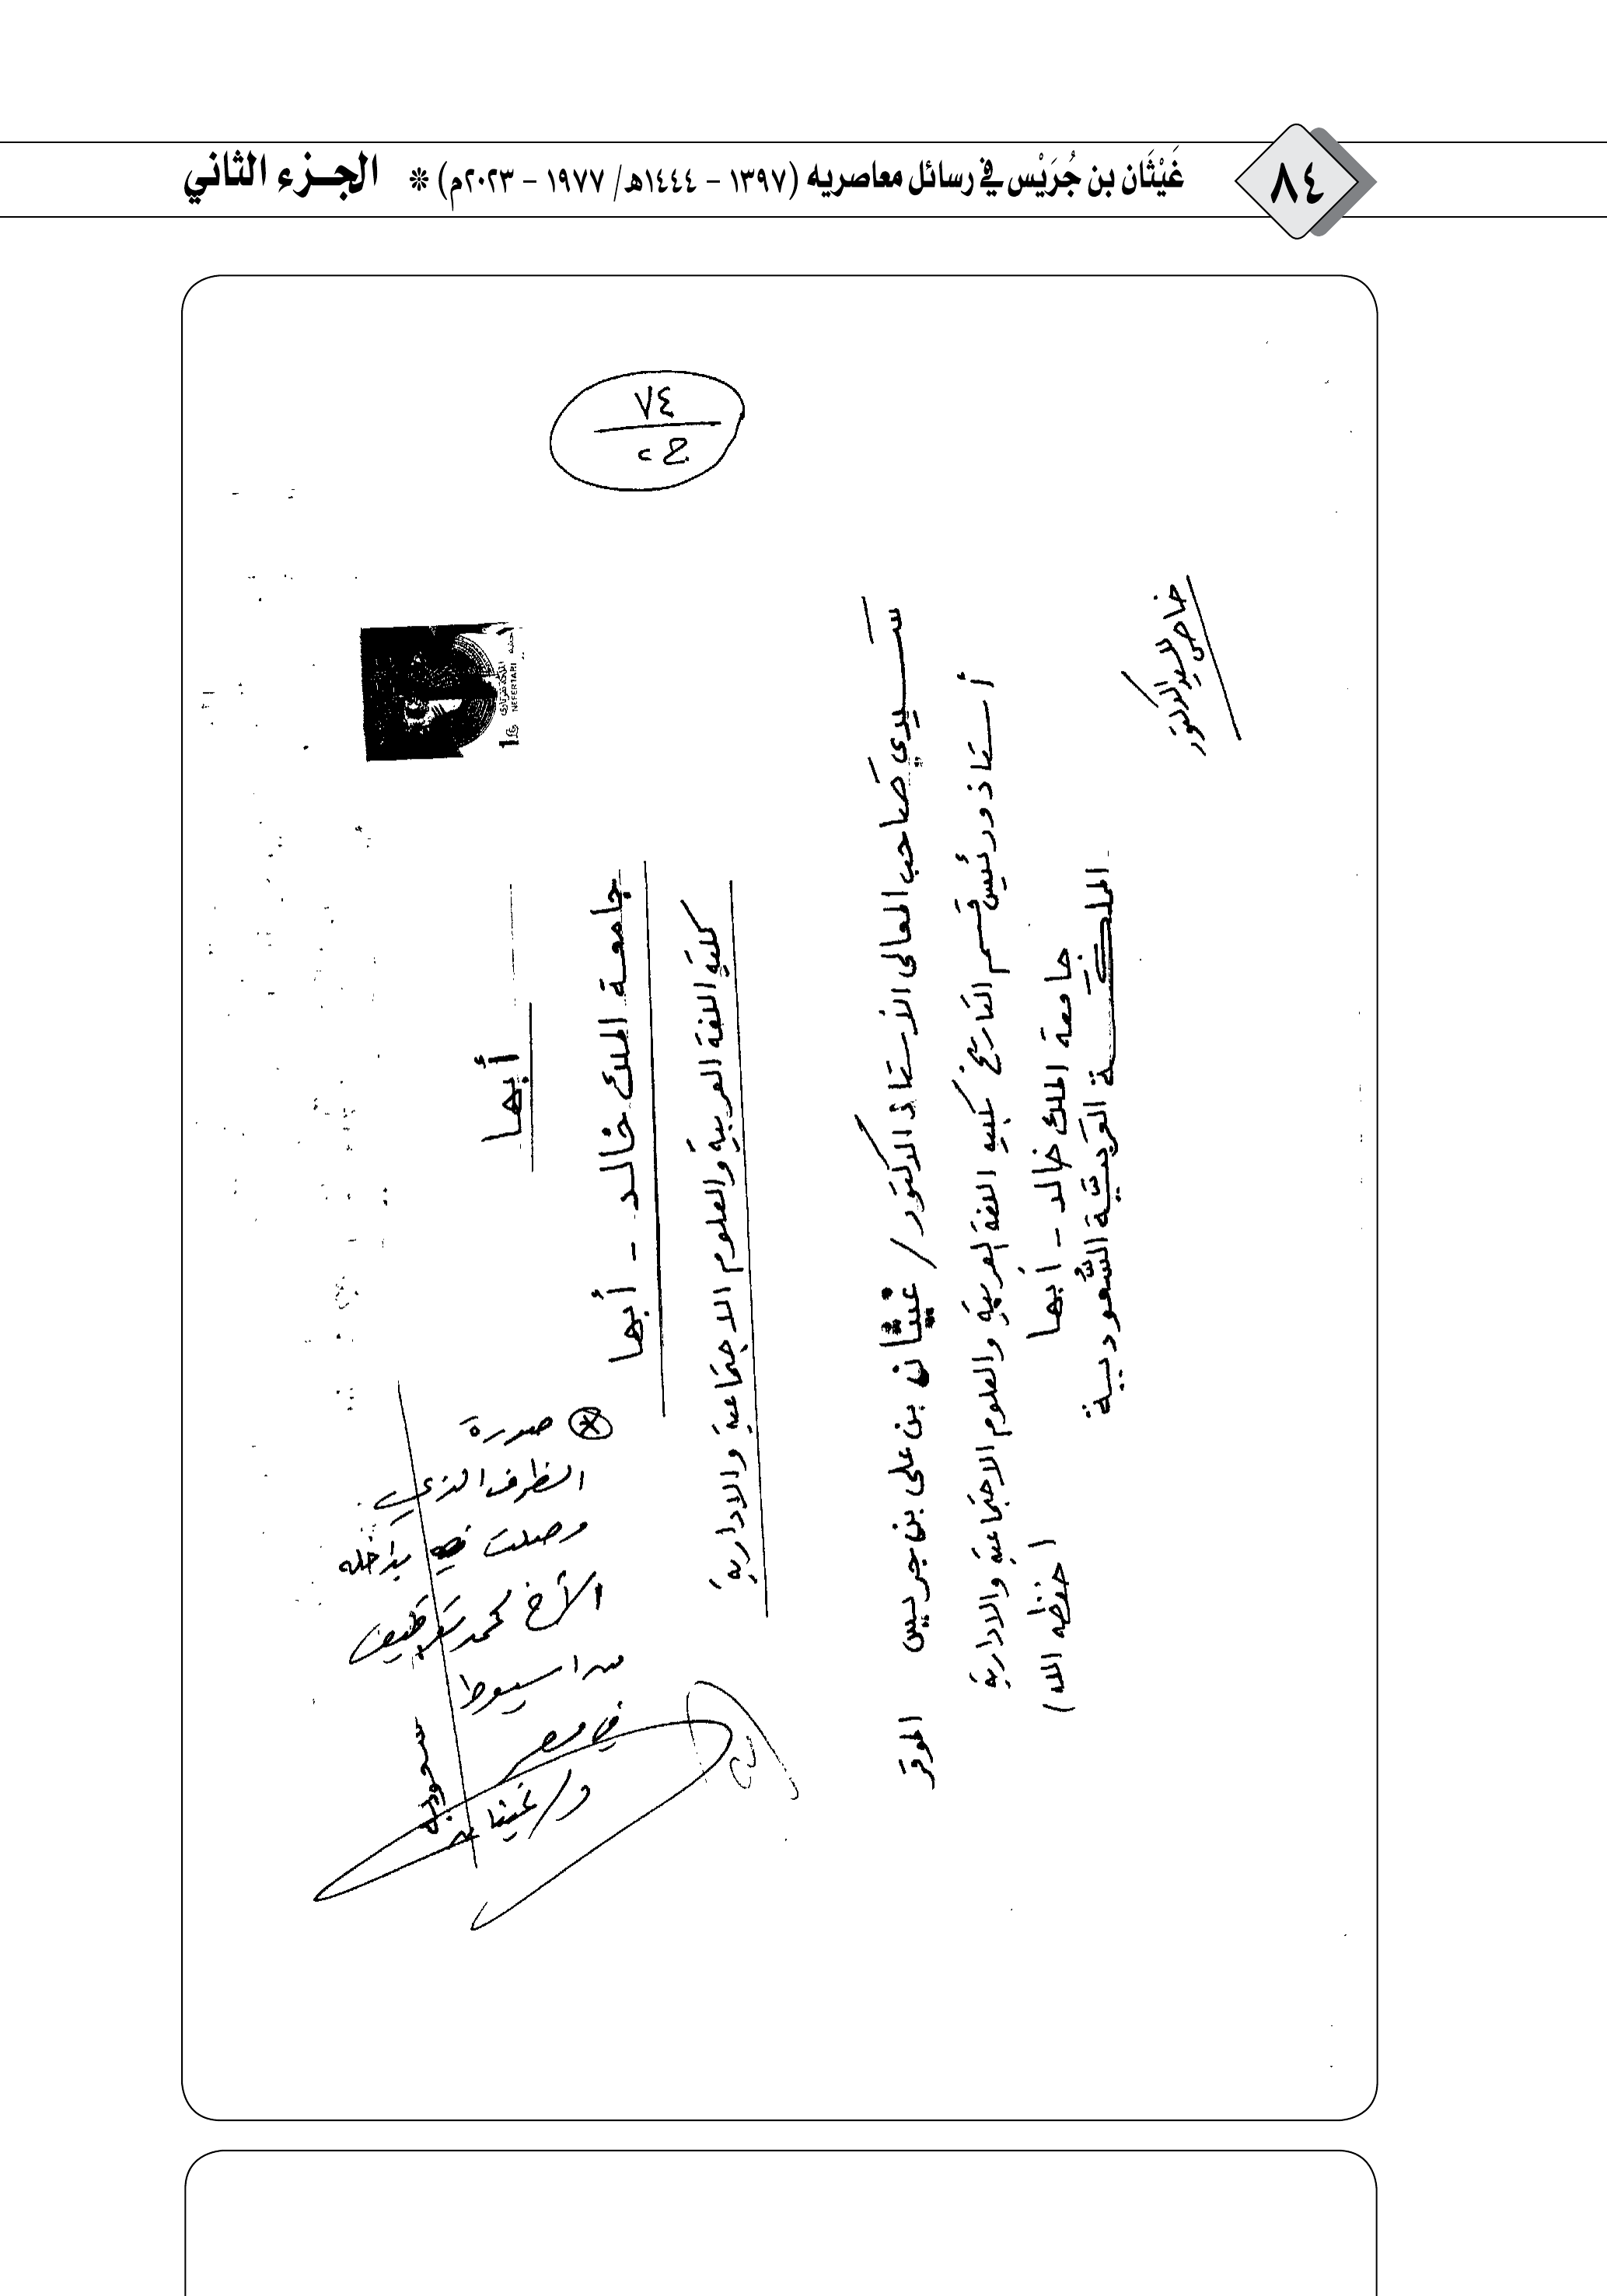 ٨٤
غَيْثَان بن جُرَيْس في رسائل معاصريه (١٣٩٧ - ١٤٤٤هـ/ ١٩٧٧ - ٢٠٢٣م) * الجزء الثاني
٧٤
أبها
جامعة الملك خالد - أبها
كلية اللغة العربية والعلوم الاجتماعية والادارية
سيدي صاحب المعالى الأستاذ الدكتور / غيثان بن على بن جريس الموقر
أستاذ ورئيس قسم التاريخ بكلية اللغة العربية والعلوم الاجتماعية والادارية
جامعة الملك خالد - أبها (حفظه الله)
المملكة العربية السعودية
خاص للسيد الدكتور
NEFERTARI
صورة
الظرف الذي
وصلت بداخله
الأخ محمد
من اسيوط
في مصر